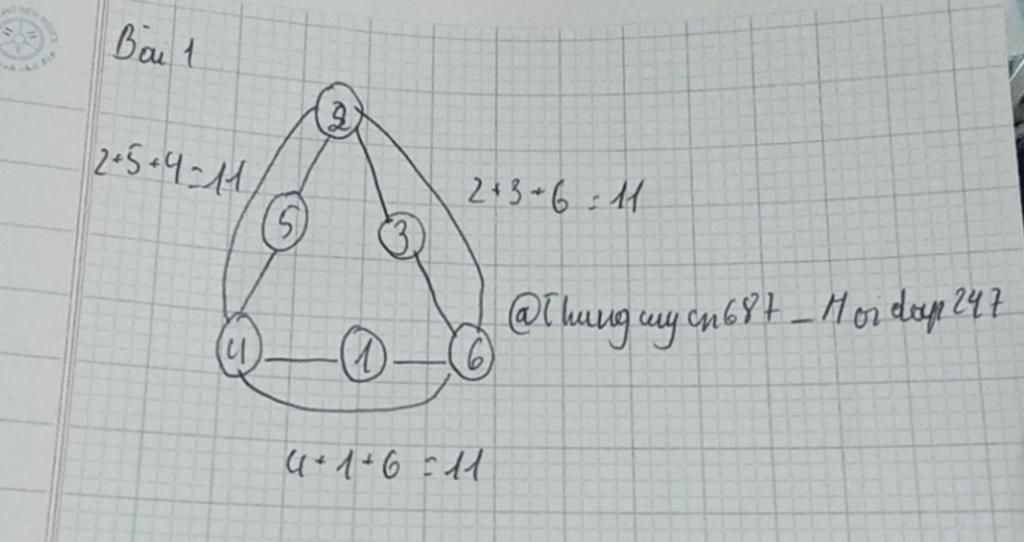 Bài 1
2
2+5+4=11
2+3+6=11
5
3
@Thunguyen687_Hoidap247
4
1
6
4+1+6=11